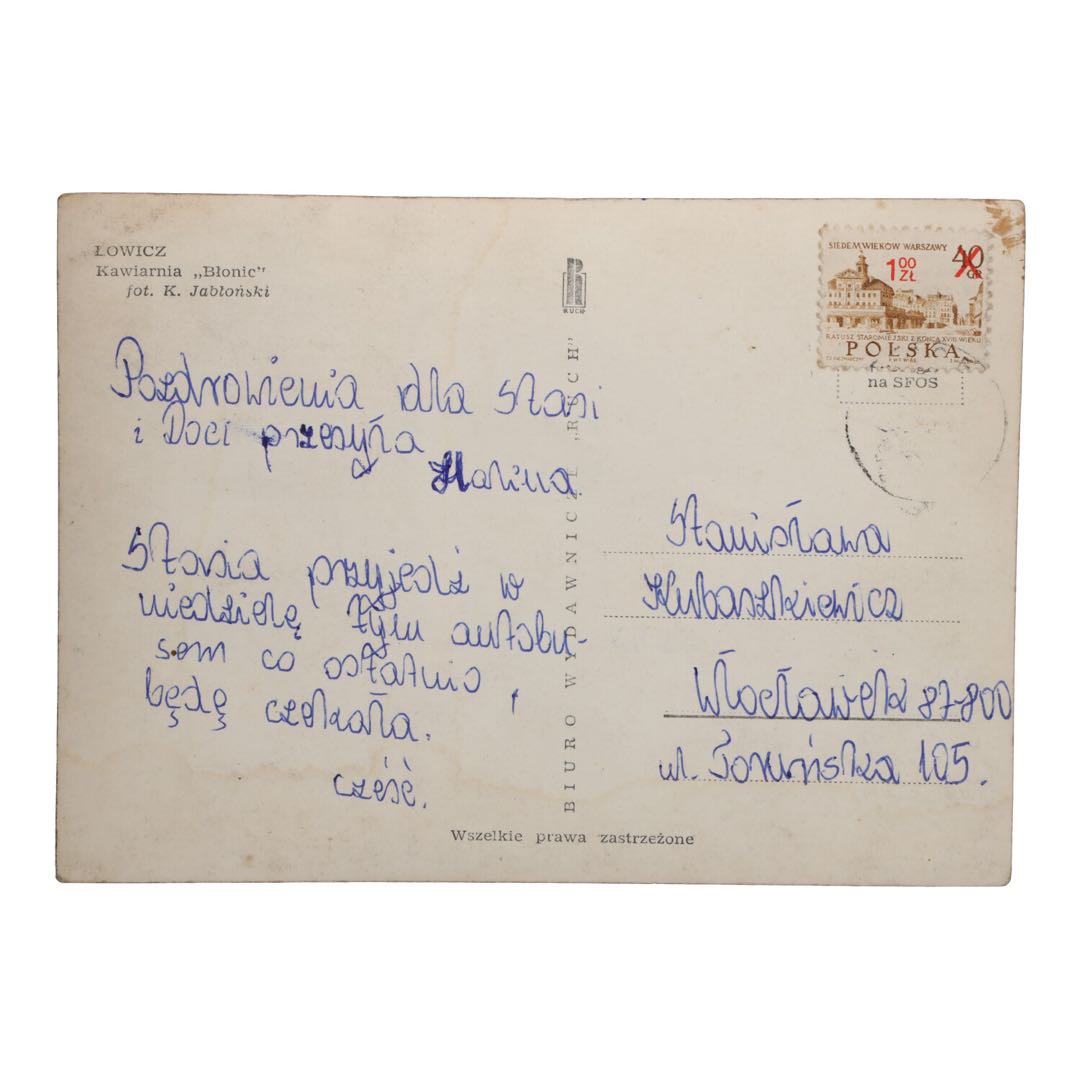 ŁOWICZ
Kawiarnia „Błonie"
fot. K. Jabłoński
Pozdrowienia dla Stasi
i Doci przesyła
Halina
Stasia przyjedź w
niedzielę tym autobu-
sem co ostatnio,
będę czekała.
cześć.
RUCH
BIURO WYDAWNICZE „RUCH"
SIEDEM WIEKÓW WARSZAWY
40 GR
1 00 ZŁ
RATUSZ STAROMIEJSKI Z KOŃCA XVIII WIEKU
POLSKA
na SFOS
Stanisława
Kubaszkiewicz
Włocławek 87-800
ul. Toruńska 105.
Wszelkie prawa zastrzeżone